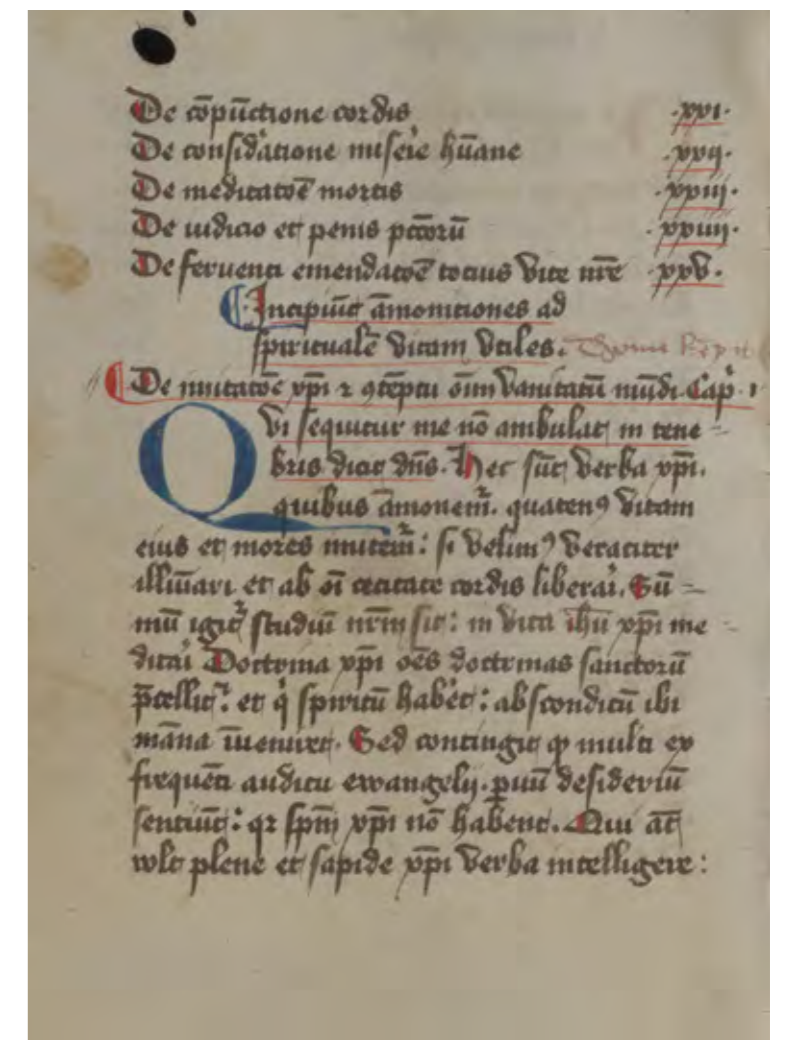 De co̅pu̅ctione cordis ·xxi·
De consid'atione miser̅ie hu̅ane ·xxij·
De meditato̅e̅ mortis ·xxiij·
De iudicio et penis pcc̅oru̅ ·xxiiij·
De feruenti emendato̅e̅ tocius vite nr̅e ·xxv·
Incipiu̅t a̅moniciones ad
spirituale̅ vitam vtiles.
De imitato̅e̅ xp̅i ⁊ ꝯte̅ptu om̅n vanitatu̅ mu̅di Cap̊ · 1
Qvi sequitur me no̅ ambulat in tene=
bris dicit dn̅s. Hec su̅t verba xp̅i.
quibus a̅monem̅ᷣ. quatenꝰ vitam
eius et mores imitem̅ᷣ: si velimꝰ veraciter
illu̅i̅ari et ab oi̅ cecitate cordis liberari. Su̅=
mu̅ igitᷣ studiu̅ nr̅m sit: in vita ih̅u xp̅i me=
ditari Doctrina xp̅i oe̅s doctrinas sanctoru̅
p̅cellit: et qͥ spiritu̅ habe̅t: absconditu̅ ibi
ma̅na i̅ueniret. Sed contingit ꝙ multi ex
freque̅ti auditu ewangelij. ꝑuu̅ desideriu̅
sentiu̅t: qꝛ spm̅ xp̅i no̅ habent. Qui at̅
wlt plene et sapide xp̅i verba intelligere: